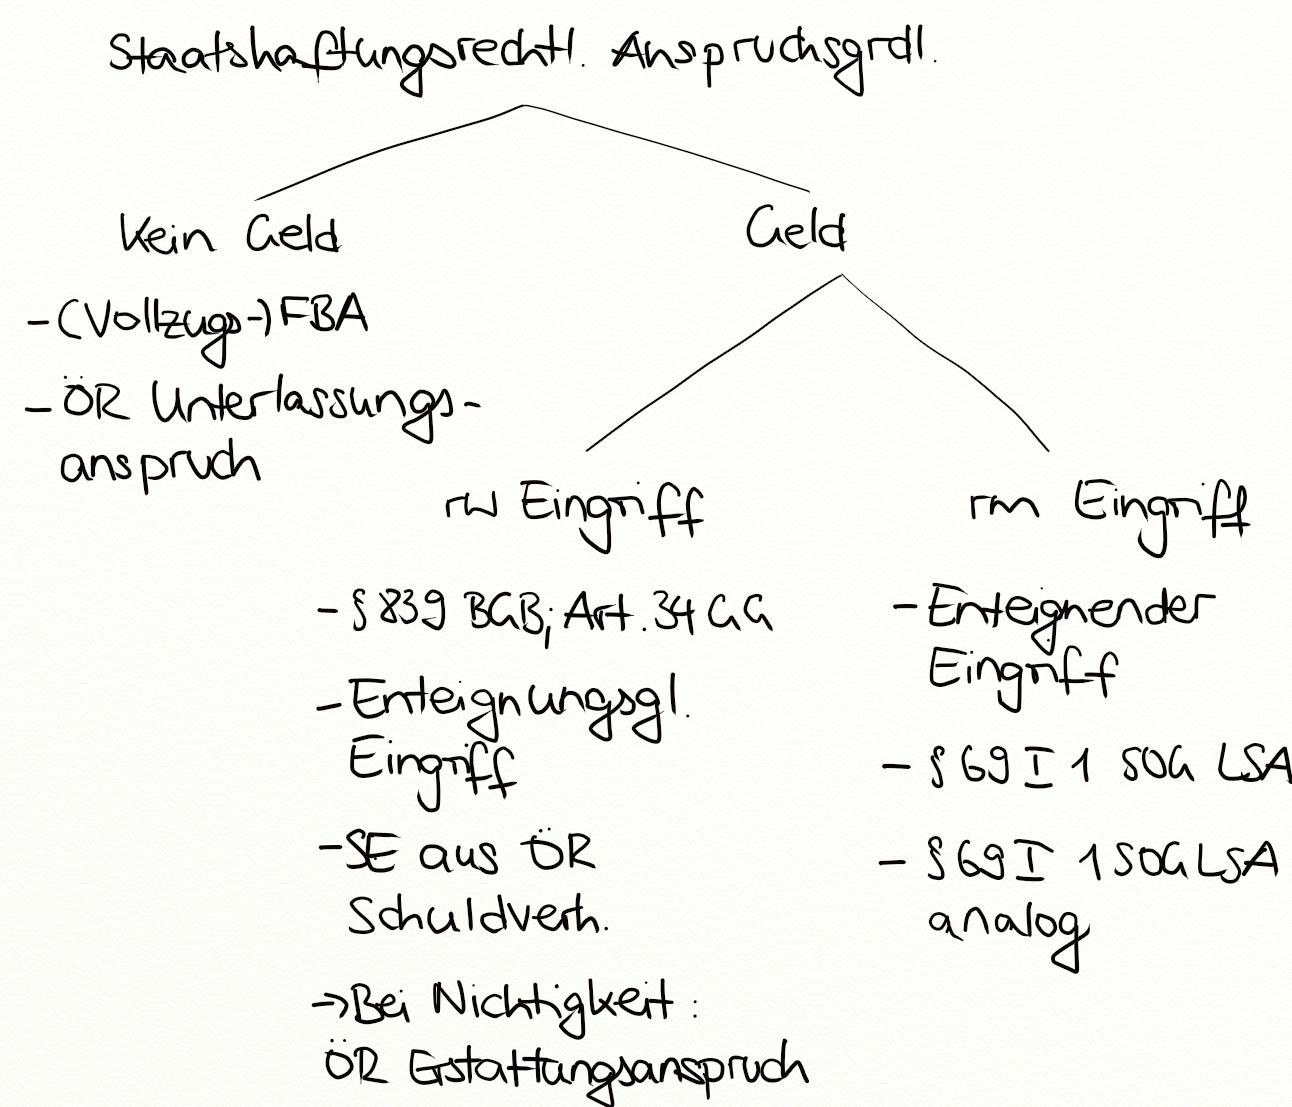 Staatshaftungsrechtl. Anspruchsgrdl.
Kein Geld
- (Vollzugs-) FBA
- ÖR Unterlassungs-
anspruch
Geld
rw Eingriff
- § 839 BGB; Art. 34 GG
- Enteignungsgl.
Eingriff
- SE aus ÖR
Schuldverh.
→ Bei Nichtigkeit:
ÖR Erstattungsanspruch
rm Eingriff
- Enteignender
Eingriff
- § 69 I 1 SOG LSA
- § 69 I 1 SOG LSA
analog